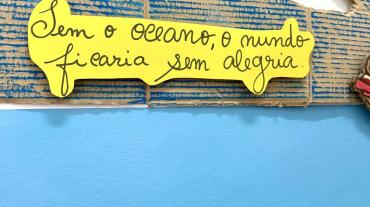 Sem o oceano, o mundo
ficaria sem alegria.